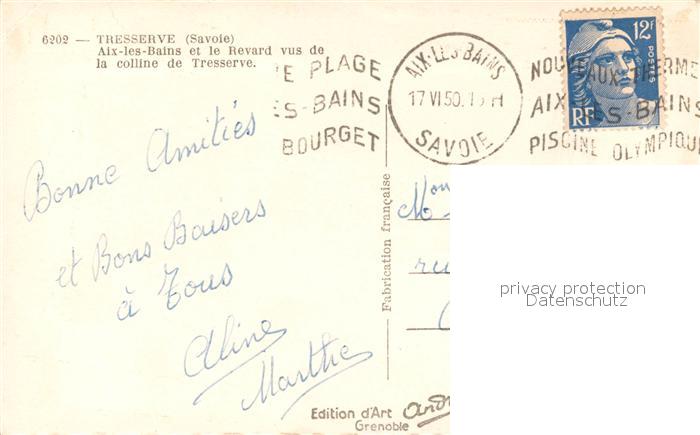 6202 — TRESSERVE (Savoie)
Aix-les-Bains et le Revard vus de
la colline de Tresserve.
PLAGE
LES-BAINS
BOURGET
AIX-LES-BAINS
17 VI 50
SAVOIE
NOUVEAUX THERME
AIX-LES-BAINS
PISCINE OLYMPIQU
12F
POSTES
RF
Bonne Amitiés
et Bons Baisers
à Tous
Aline
Marthe
Fabrication française
Mon
ru
privacy protection
Datenschutz
Edition d'Art And
Grenoble